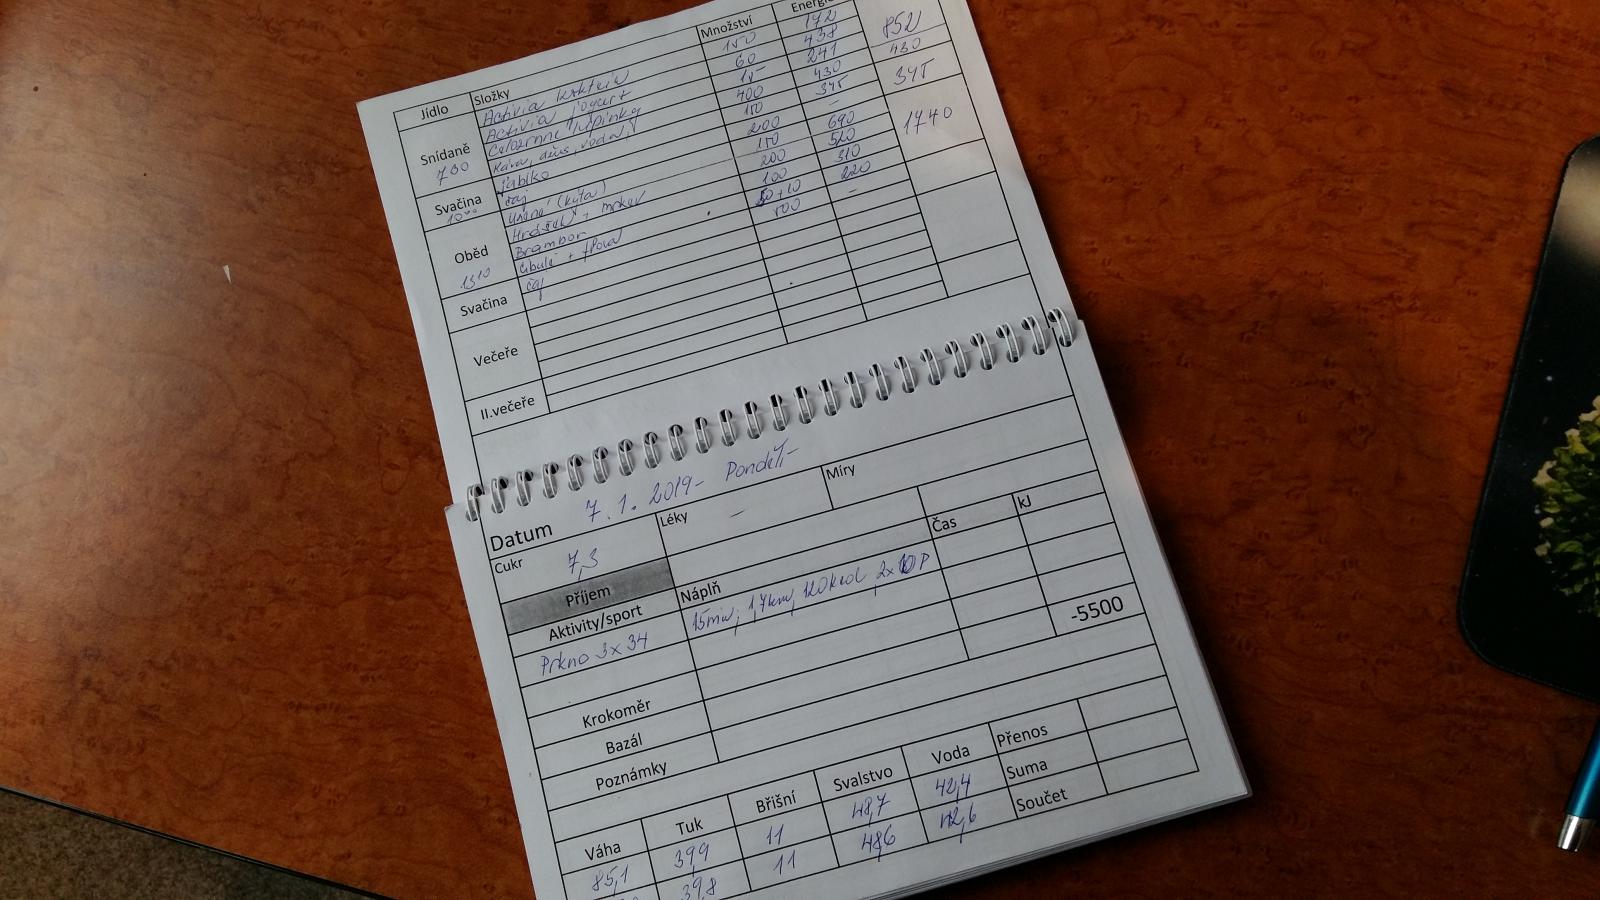 Jídlo Složky Množství Energie
Snídaně 7 30 Activia koktejl 150 172 852
Activia jogurt 60 438 430
Celozrnné lupínky 15 241 345
Káva, džus, voda 400 430 1740
Svačina 10 jablko 150 345
čaj 200 –
Oběd 13 10 Uzené (kýta) 150 690
Hrášek + mrkev 200 520
Brambor 100 310
cibule + 50+10 220
Svačina čaj 500 –
Večeře
II.večeře
Datum 7. 1. 2019 - Pondělí -
Cukr 7,3 Léky – Míry
Příjem
Aktivity/sport Náplň Čas kJ
Prkno 3x34 15min; 1,7km, 120kcal, 2x10P
Krokoměr
Bazál -5500
Poznámky
Váha Tuk Břišní Svalstvo Voda Přenos
85,1 39,9 11 48,7 42,4 Suma
39,8 11 48,6 42,6 Součet